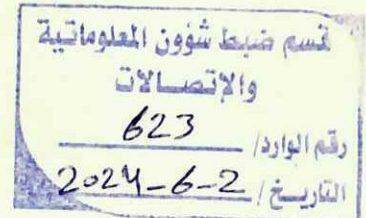 قسم ضبط شؤون المعلوماتية
والإتصالات
رقم الوارد/ 623
التاريخ / 2024-6-2